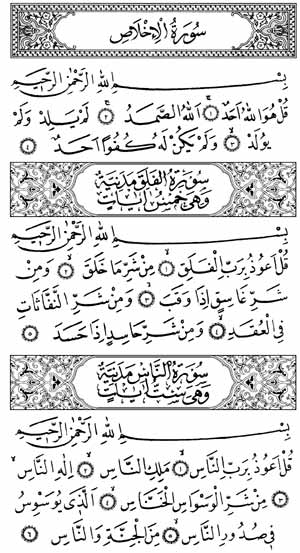 سُورَةُ الْإِخْلَاصِ
بِسْمِ اللهِ الرَّحْمٰنِ الرَّحِيمِ
قُلْ هُوَ اللهُ أَحَدٌ ١ اَللهُ الصَّمَدُ ٢ لَمْ يَلِدْ وَلَمْ
يُولَدْ ٣ وَلَمْ يَكُنْ لَهُ كُفُوًا أَحَدٌ ٤
سُورَةُ الْفَلَقِ مَدَنِيَّةٌ
وَهِيَ خَمْسُ آيَاتٍ
بِسْمِ اللهِ الرَّحْمٰنِ الرَّحِيمِ
قُلْ أَعُوذُ بِرَبِّ الْفَلَقِ ١ مِنْ شَرِّ مَا خَلَقَ ٢ وَمِنْ
شَرِّ غَاسِقٍ إِذَا وَقَبَ ٣ وَمِنْ شَرِّ النَّفَّاثَاتِ
فِي الْعُقَدِ ٤ وَمِنْ شَرِّ حَاسِدٍ إِذَا حَسَدَ ٥
سُورَةُ النَّاسِ مَدَنِيَّةٌ
وَهِيَ سِتُّ آيَاتٍ
بِسْمِ اللهِ الرَّحْمٰنِ الرَّحِيمِ
قُلْ أَعُوذُ بِرَبِّ النَّاسِ ١ مَلِكِ النَّاسِ ٢ إِلٰهِ النَّاسِ
٣ مِنْ شَرِّ الْوَسْوَاسِ الْخَنَّاسِ ٤ اَلَّذِي يُوَسْوِسُ
فِي صُدُورِ النَّاسِ ٥ مِنَ الْجِنَّةِ وَالنَّاسِ ٦